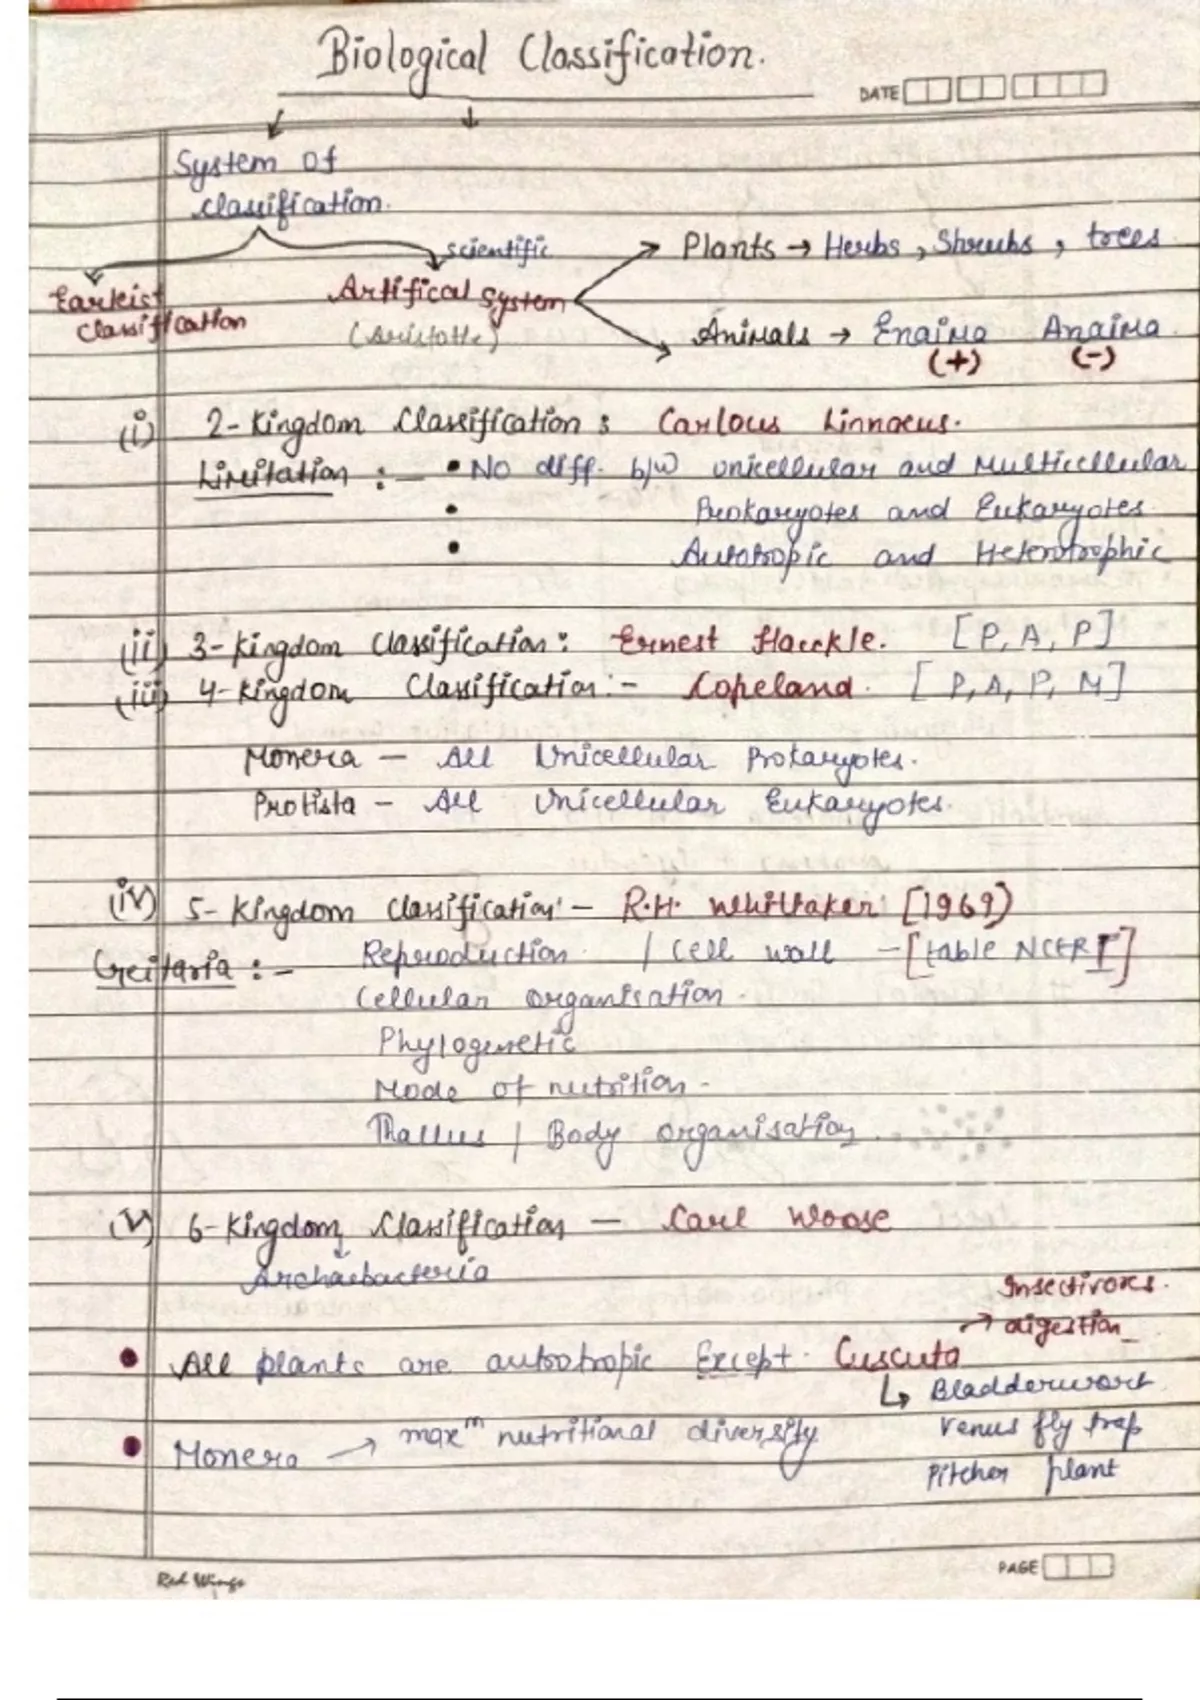 Biological Classification.
DATE
System of
classification.
scientific
Plants → Herbs, Shrubs, trees
Earleist
classification
Artifical system
(Aristotle)
Animals → Enaima Anaima
(+) (-)
(i) 2-Kingdom Classification : Carlous Linnaeus.
Limitation :- • No diff. b/w unicellular and Multicellular
• Prokaryotes and Eukaryotes
• Autotropic and Heterotrophic
(ii) 3-Kingdom Classification : Ernest Haeckle. [P, A, P]
(iii) 4-Kingdom Classification :- Copeland. [P, A, P, M]
Monera - All Unicellular Prokaryotes.
Protista - All Unicellular Eukaryotes.
(iv) 5-Kingdom Classification - R.H. Whittaker [1969)
Creitaria :- Reproduction / Cell wall - [table NCERT]
Cellular organisation.
Phylogenetic
Mode of nutrition -
Thallus / Body organisation
(v) 6-Kingdom Classification - Carl Woose
↓
Archaebacteria
Insectivores.
→ digestion
• All plants are autotropic Except. Cuscuta
↳ Bladderwort
• Monera → maxᵐ nutritional diversity
Venus fly trap
Pitcher plant
Red Wings
PAGE